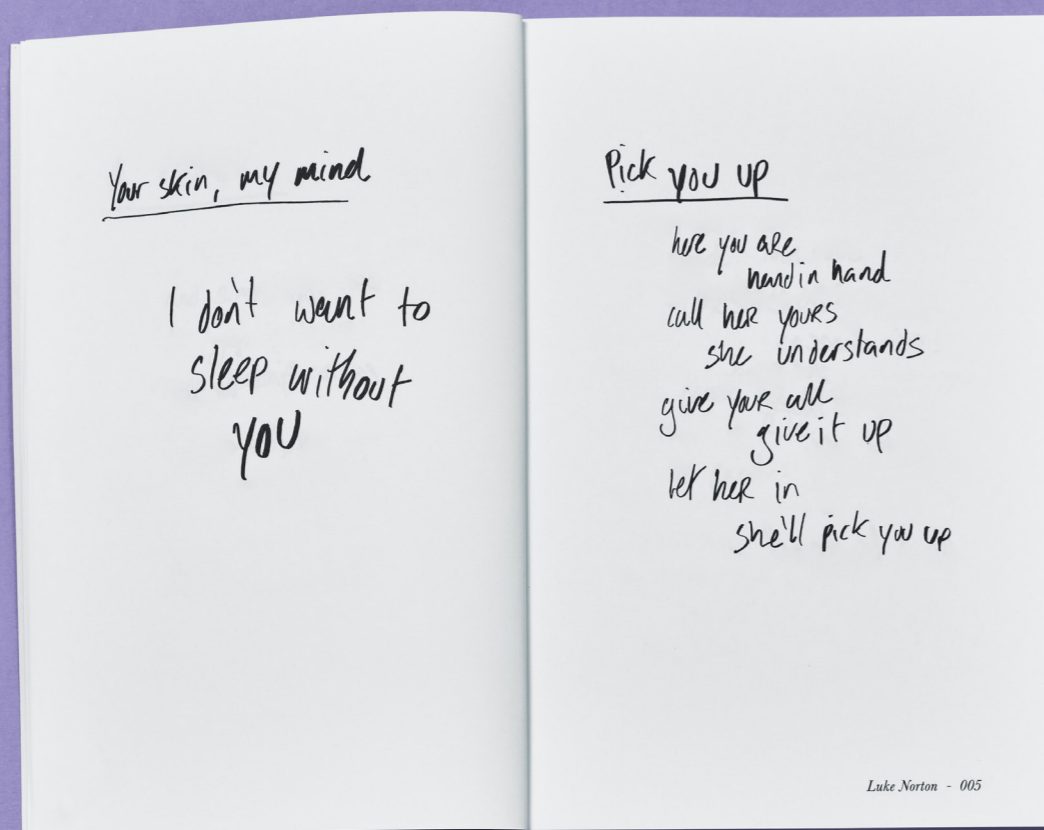 Your skin, my mind
I don't want to
sleep without
YOU
Pick you up
here you are
hand in hand
call her yours
she understands
give your all
give it up
let her in
she'll pick you up
Luke Norton - 005